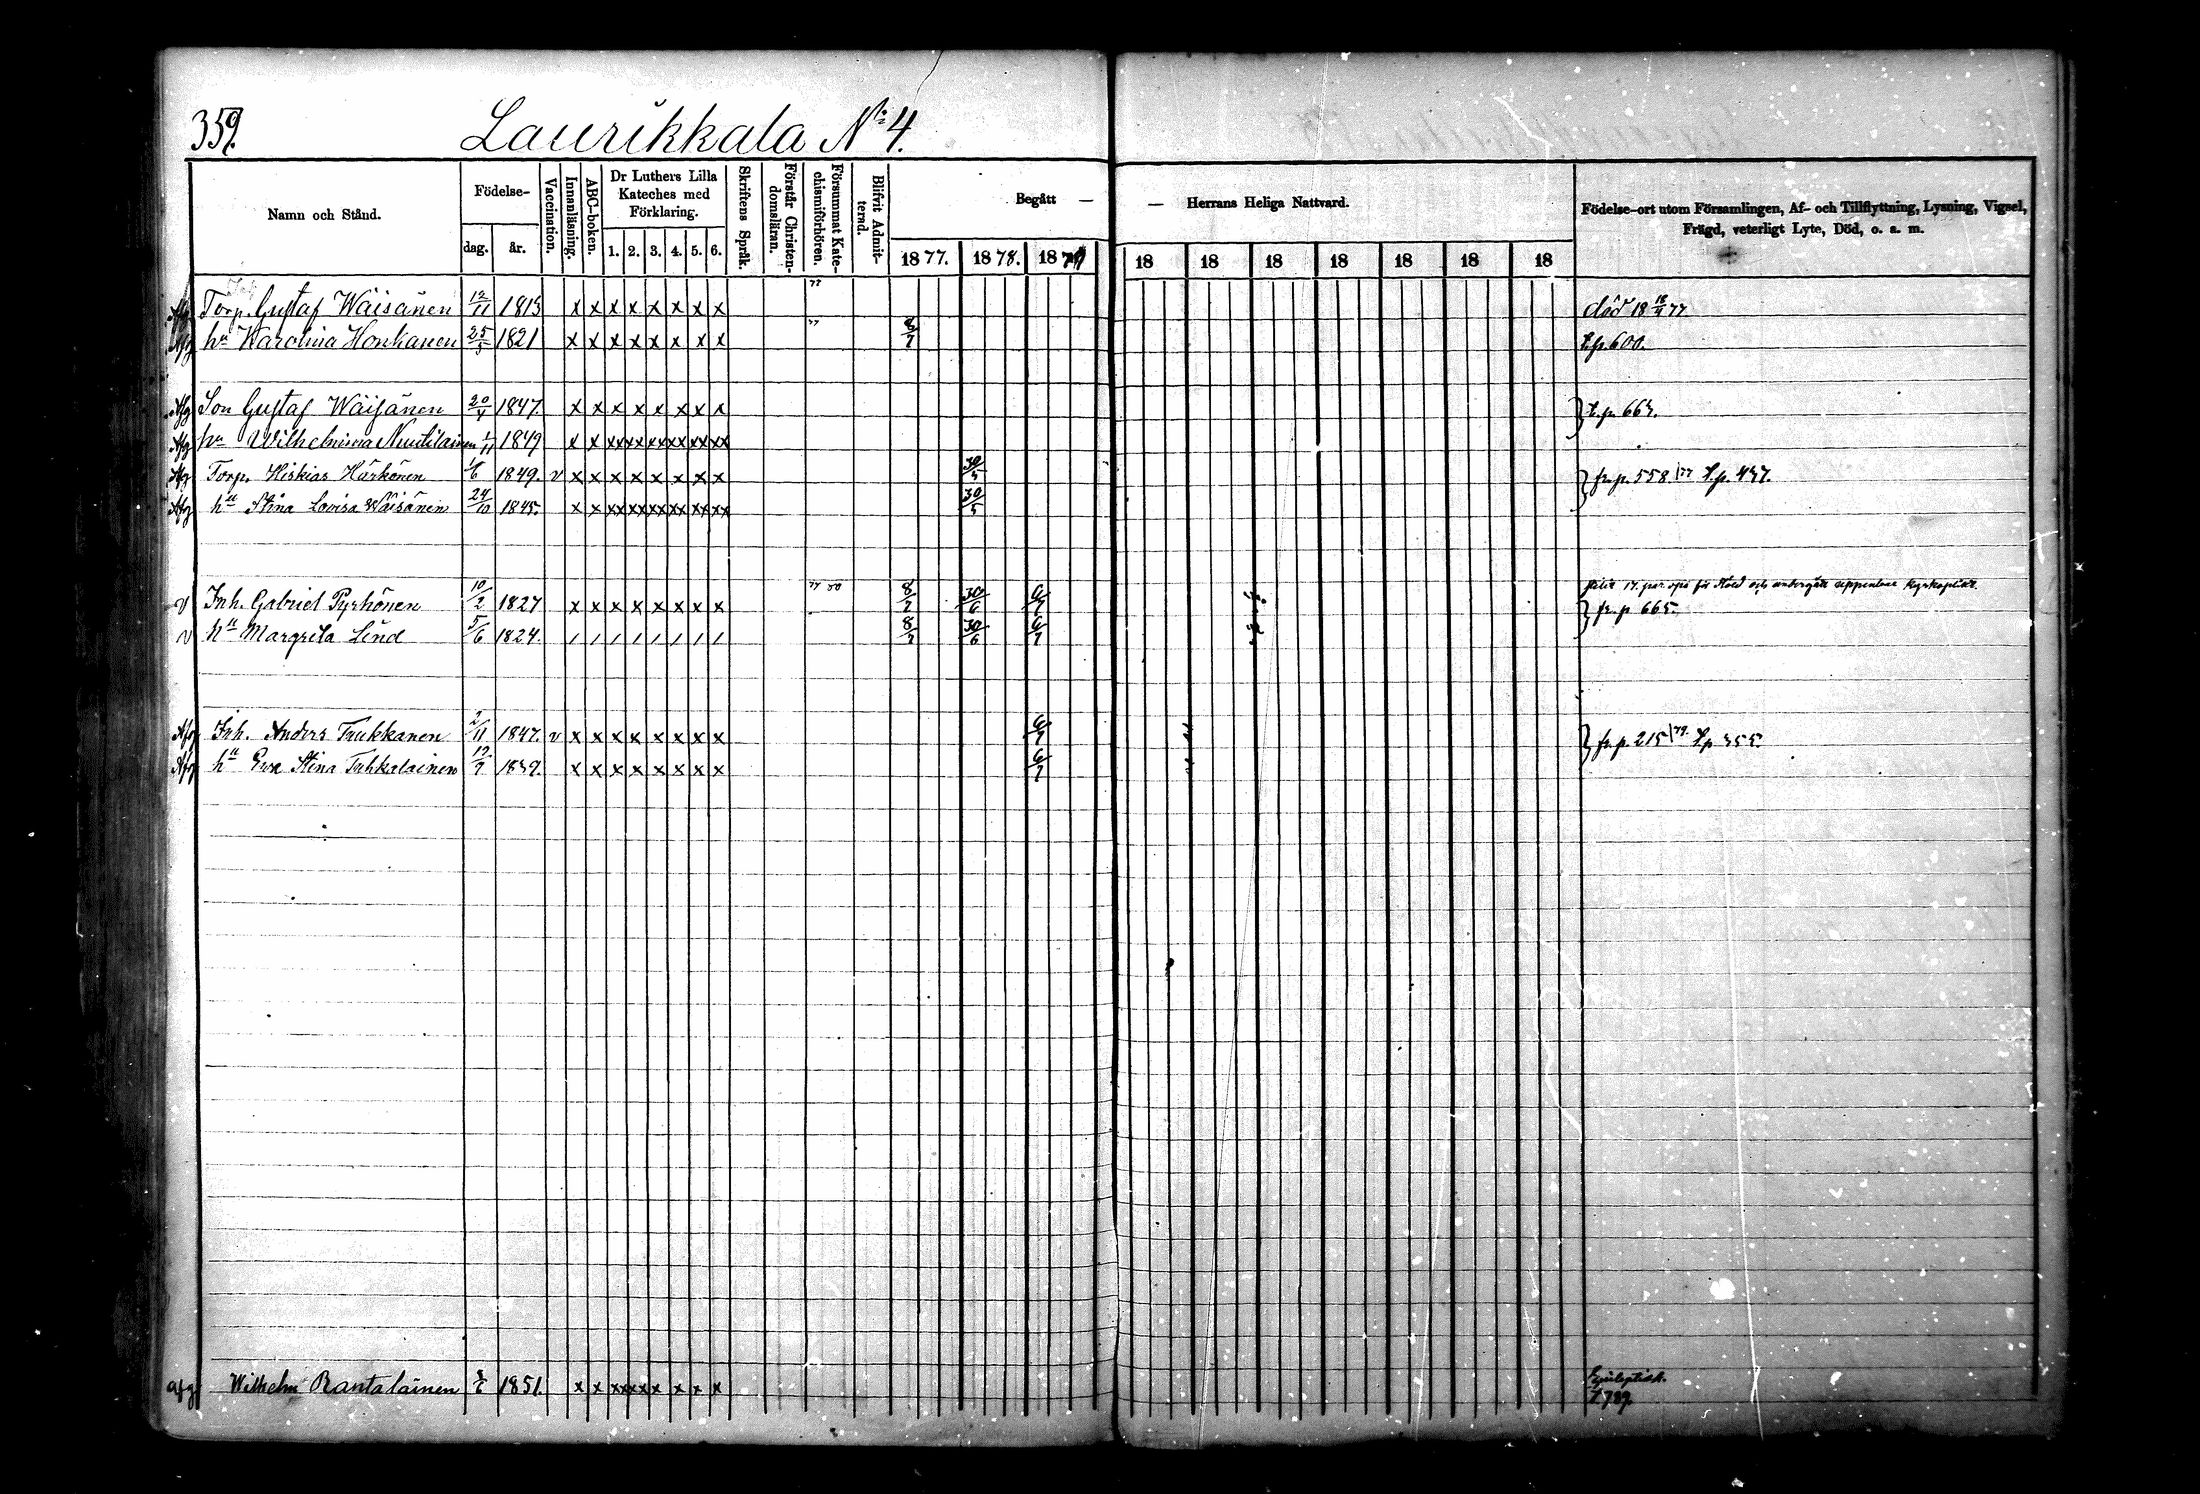 359.
Laurikkala No 4.
Namn och Stånd.
Födelse-
dag.
år.
Vaccination.
Innanläsning.
ABC-boken.
Dr Luthers Lilla Kateches med Förklaring.
1. 2. 3. 4. 5. 6.
Skriftens Språk.
Förstår Christendomsläran.
Försummat Katechismiförhören.
Blifvit Admitterad.
Begått —
— Herrans Heliga Nattvard.
1877. 1878. 1879 18 18 18 18 18 18 18
Födelse-ort utom Församlingen, Af- och Tillflyttning, Lysning, Vigsel,
Frägd, veterligt Lyte, Död, o. s. m.
Afg Torp. Gustaf Wäisänen 12/11 1813 x x x x x x x x 77 död 18 18/4 77
Afg hu Karolina Honkanen 25/3 1821 x x x x x x x x 77 8/7 t.p. 600.
Afg Son Gustaf Wäisänen 20/4 1847. x x x x x x x x t.p. 663.
Afg hu Wilhelmina Nuutilainen 1/11 1849 x x xx xx xx xx xx xx
Afg Torp. Hiskias Härkönen 1/6 1849. v x x x x x x x x 30/5 fr. p. 558. /77 t.p. 437.
Afg hu Stina Lovisa Wäisänen 24/10 1845. x x xx xx xx xx xx xx 30/5
v Inh. Gabriel Pyrhönen 10/2 1827 x x x x x x x x 77 80 8/7 30/6 6/7 fr. p 665.
v hu Margreta Lind 5/6 1824. / / / / / / / / 8/7 30/6 6/7
Afg Inh. Anders Tuukkanen 2/11 1847. v x x x x x x x x 6/7 fr. p. 215 /79. t.p 355.
Afg hu Ewa Stina Tuhkalainen 19/7 1839. x x x x x x x x 6/7
afg Wilhelm Rantalainen 1851. x x xx xx x x x x Epileptisk.
t 789.